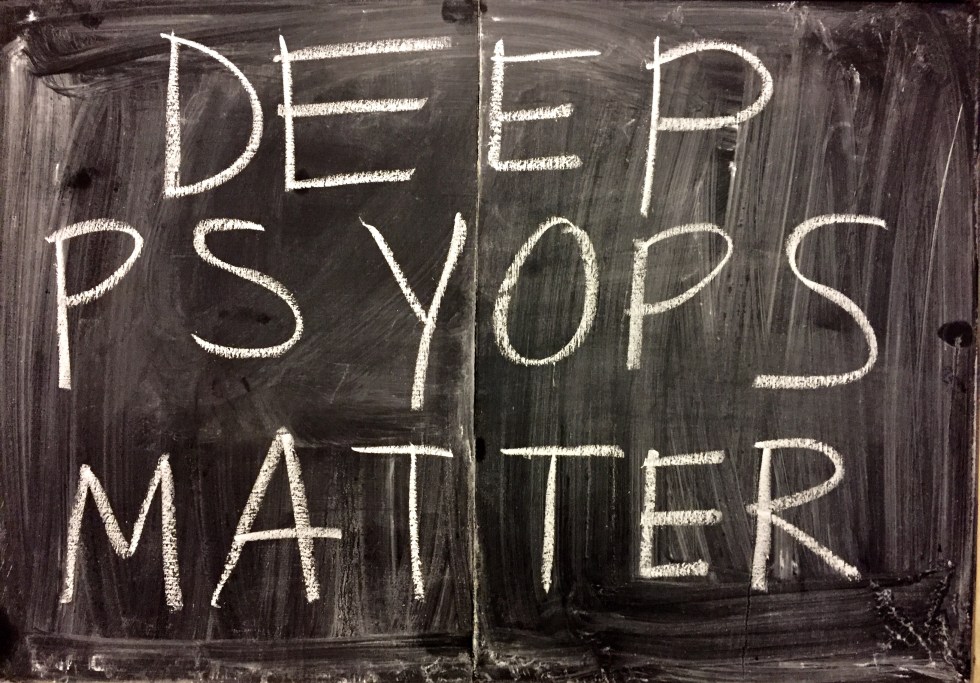 DEEP
PSYOPS
MATTER